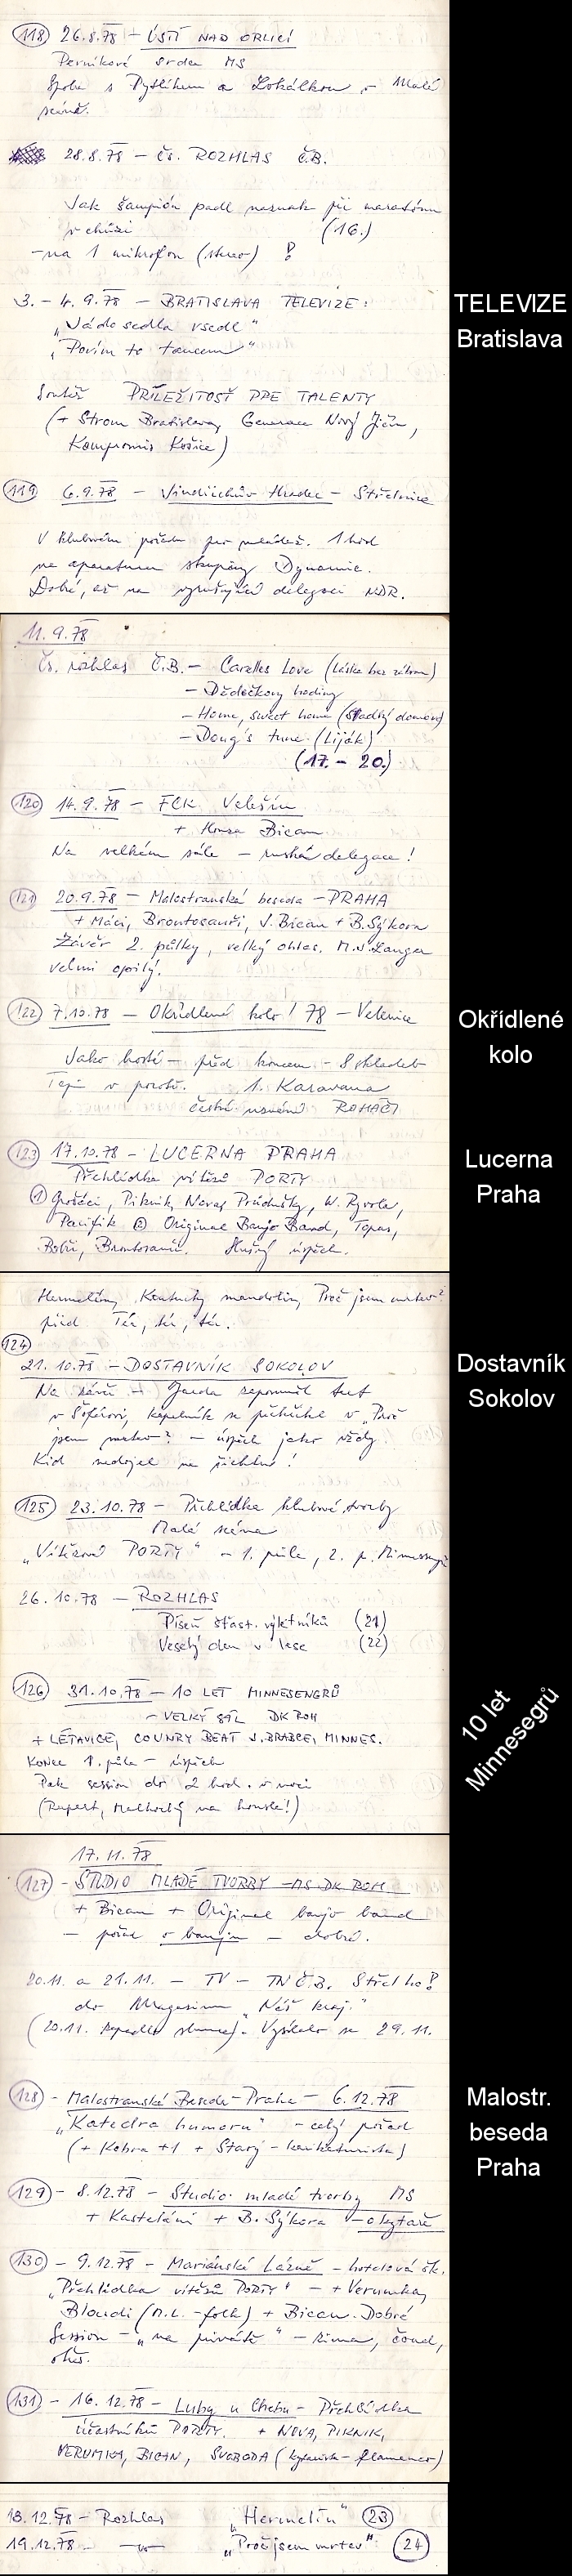 118 26.8.78 - ÚSTÍ NAD ORLICÍ
Perníkové srdce MS
Spolu s Pytlíkem a Lokálkou v Malé
scéně.
28.8.78 - Čs. ROZHLAS Č.B.
Jak šampión padl naznak při maratónu
v chůzi (16.)
- na 1 mikrofon (stereo) !?
3. - 4. 9. 78 - BRATISLAVA TELEVIZE:
„Jádo sedla vsedl"
„Povím to tancem"
TELEVIZE
Bratislava
Soutěž PŘÍLEŽITOSŤ PRE TALENTY
(+ Strom Bratislava, Generace Nový Jičín,
Kompromis Košice)
119 6.9.78 - Jindřichův Hradec - Střelnice
V klubovém pořadu pro mládež. 1 hod
na aparaturu skupiny Dynamic.
Dobré, až na vyrušující delegaci NDR.
11.9.78
Čs. rozhlas Č.B. - Careles Love (Láska bez zábran)
- Dědečkovy hodiny
- Home, sweet home (Sladký domov)
- Doug's tune (Liják)
(17. - 20.)
120 14.9.78 - FCK Velešín
+ Honza Bican
Na velkém sále - ruská delegace!
121 20.9.78 - Malostranská beseda - PRAHA
+ Máci, Brontosauři, J. Bican + B. Sýkora
Závěr 2. půlky, velký ohlas. M.J. Langer
velmi opilý.
122 7.10.78 - Okřídlené kolo! 78 - Velenice
Okřídlené
kolo
Jako hosté - před koncem - 8 skladeb
v porotě. 1. Karavana
české uznání ROHÁČI
123 17.10.78 - LUCERNA PRAHA
Přehlídka vítězů PORTY
Lucerna
Praha
① Grošáci, Piknik, Návaz Průdušky, W. Ryvola,
Pacifik ② Original Banjo Band, Topas,
Bobři, Brontosauři. Slušný úspěch.
Hermelín, Kentucky mandolin, Proč jsem mrtev?
příd. Tér, tér, tér.
124
21.10.78 - DOSTAVNÍK SOKOLOV
Dostavník
Sokolov
Na závěr - Jarda zapomněl text
v Šoférovi, kapelník se přehrhl v „Proč
jsem mrtev? - úspěch jako vždy.
Kid nedojel na šichtu!
125 23.10.78 - Přehlídka klubové tvorby
Malá scéna
„Vítězové PORTY" - 1. půle, 2. p. Minnesengři
26.10.78 - ROZHLAS
Píseň šťast. výletníků (21)
Veselý den v lese (22)
126 31.10.78 - 10 LET MINNESENGRŮ
- VELKÝ SÁL DK ROH
+ LÉTAVICE, COUNRY BEAT J. BRABCE, MINNES.
10 let
Minnesegrů
KONEC 1. půle - úspěch
Pak session do 2 hod. v noci
(Rupert, Malhocký na housle!)
17.11.78
127 - STUDIO MLADÉ TVORBY - MS DK ROH
+ Bican + Original banjo band
- pořad o banju - dobré.
20.11. a 21.11. - TV - TN Č.B. Střel ho!?
do Magazinu „Náš kraj."
(20.11. zapadlo slunce). Vysílalo se 29.11.
128 - Malostranská Beseda - Praha - 6.12.78
Malostr.
beseda
Praha
„Katedra humoru" - celý pořad
(+ Kobra +1 + Starý - karikaturista)
129 - 8.12.78 - Studio mladé tvorby MS
+ Kasteláni + B. Sýkora - o kytaře
130 - 9.12.78 - Mariánské Lázně - hotelová šk.
„Přehlídka vítězů PORTY" - + Verumka,
Bloudi (M.L. - folk) + Bican. Dobré
Session - „na privátě" - zima, čoud,
131 - 16.12.78 - Luby u Chebu - Přehlídka
účastníků PORTY. + NOVA, PIKNIK,
VERUMKA, BICAN, SVOBODA (kytarista - flamenco)
18.12.78 - Rozhlas „Hermelín" 23
19.12.78 - „Proč jsem mrtev": 24